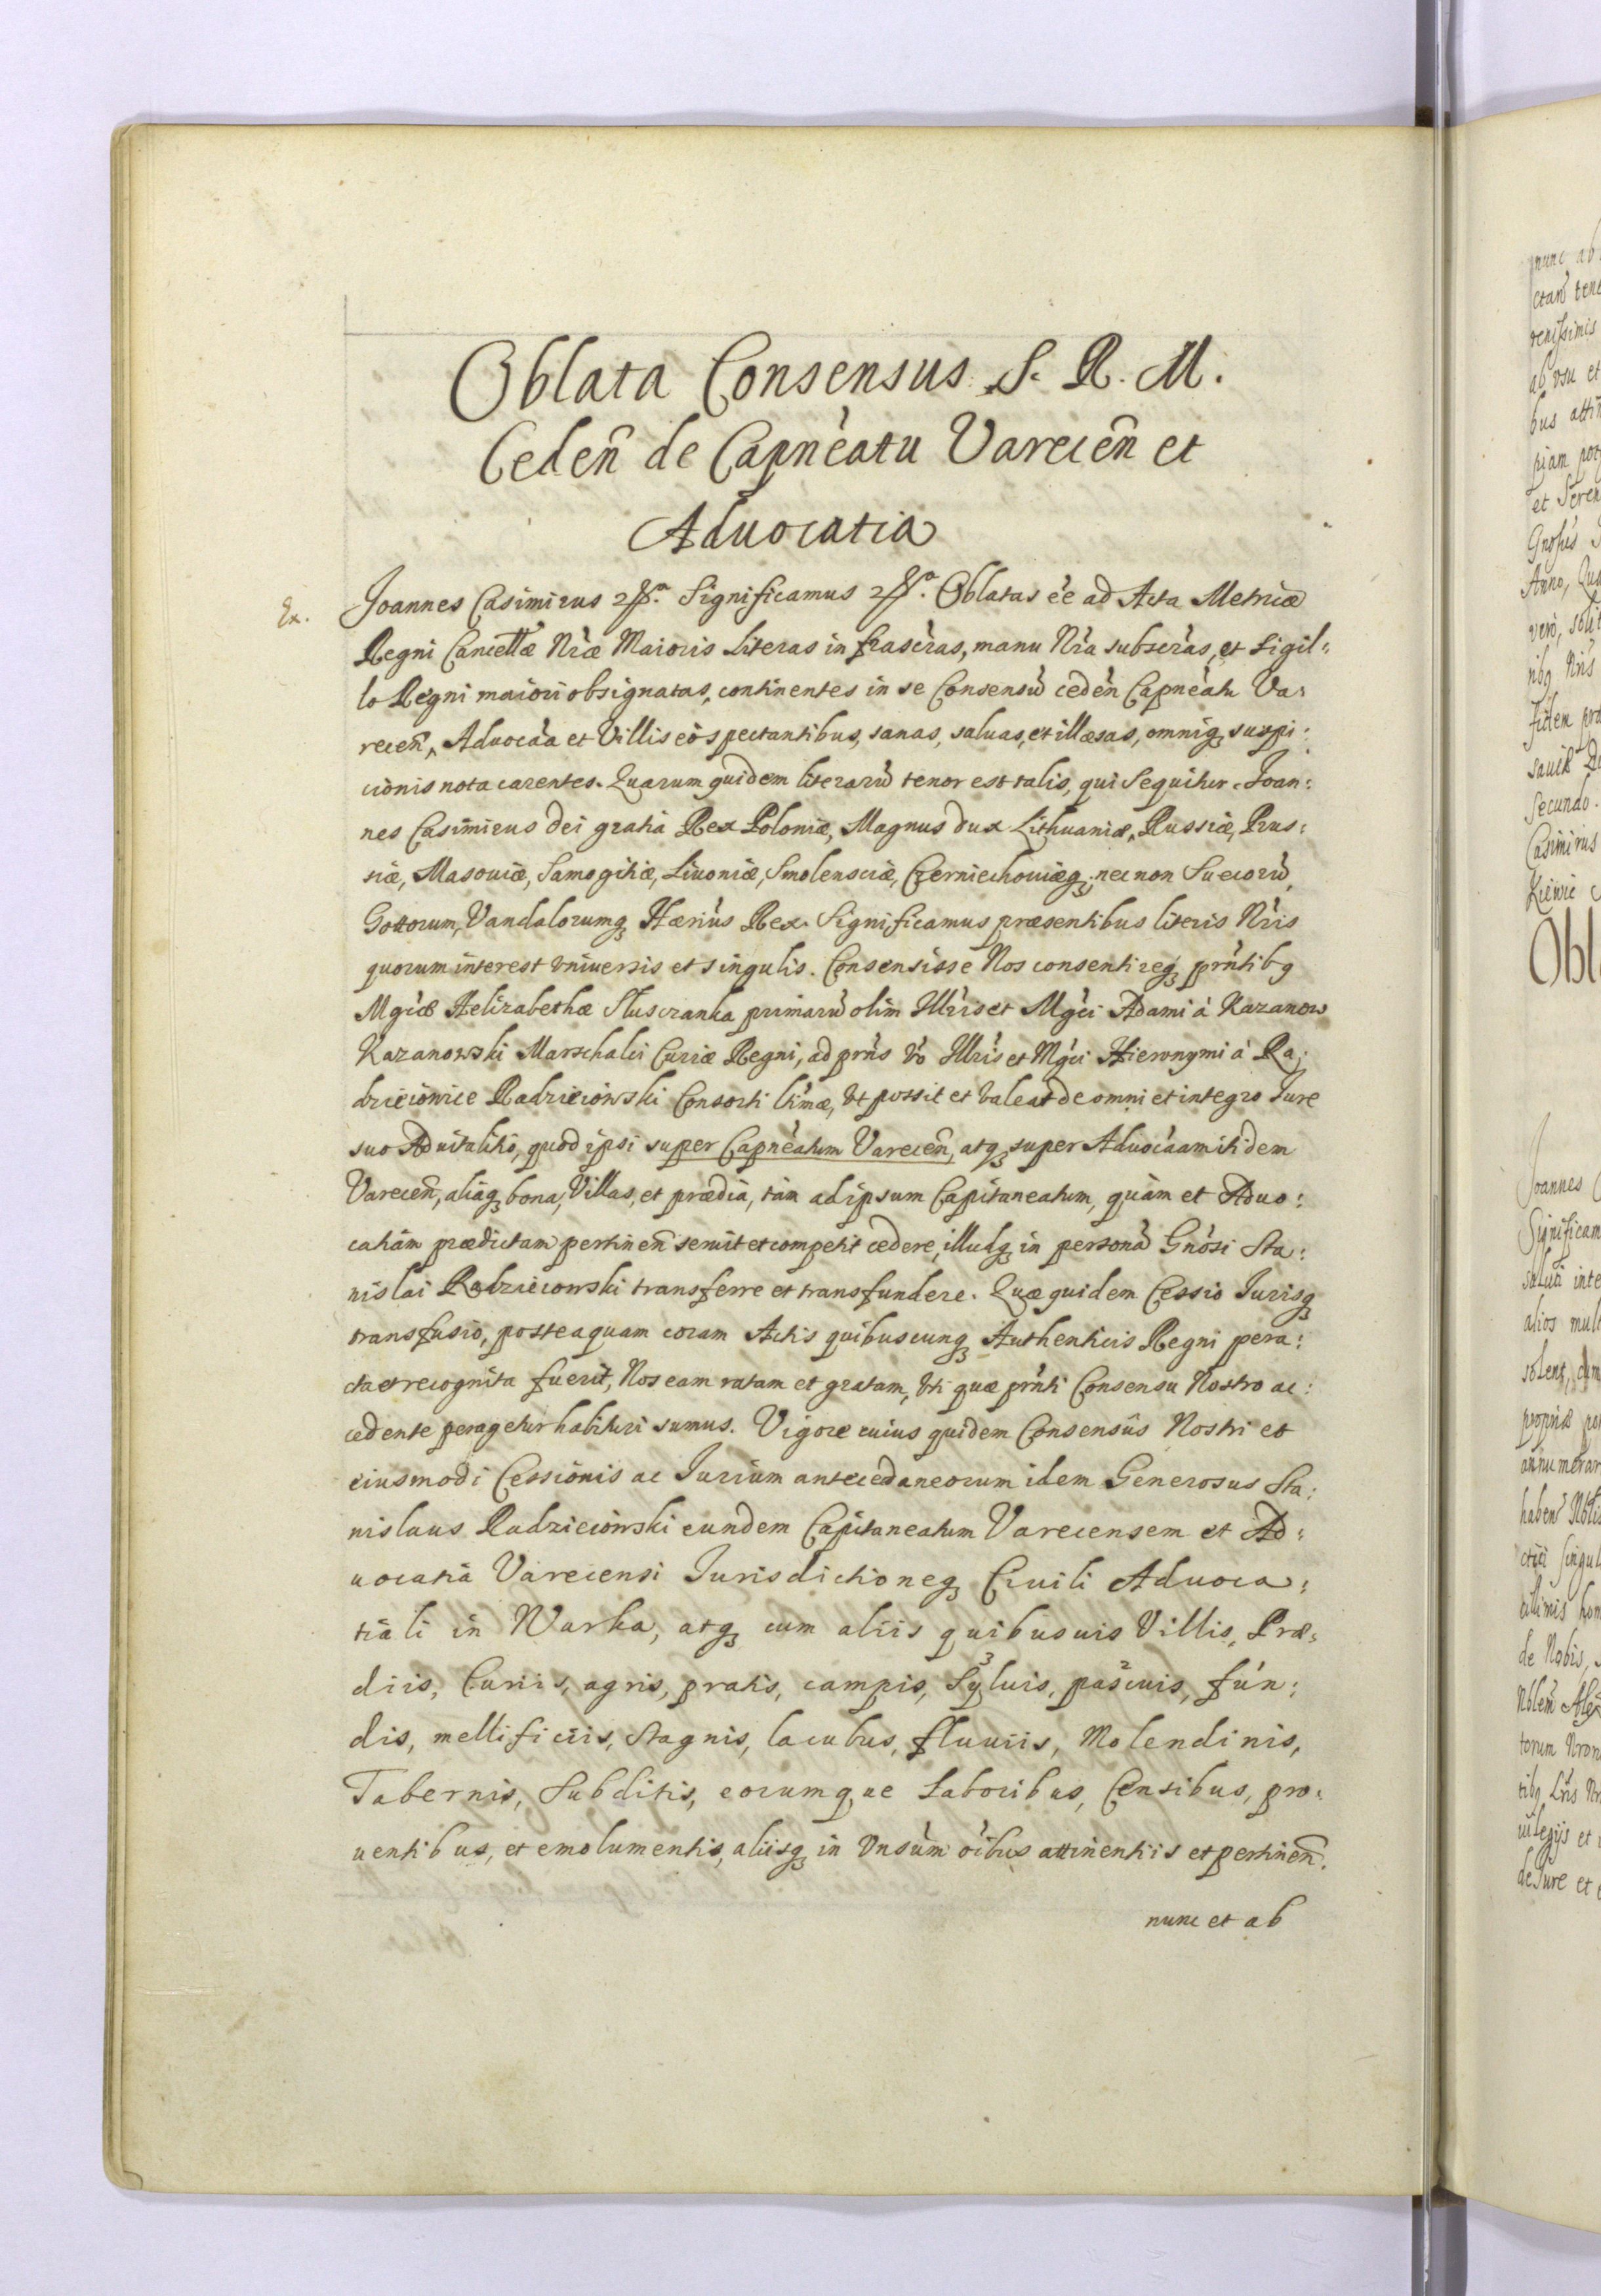 Oblata Consensus S. R. M.
Cedeñ de Capneatu Varecen̄ et
Aduocatia
Ex. Joannes Casimirus Significamus Oblatas ee ad Acta Metricæ
Regni Cancellæ Nræ Maioris Literas infrascras, manu Nra subscras, et Sigil=
lo Regni maiori obsignatas, continentes in se Consensũ ceden Capneatu Va=
recen̄, Aduocaa et Villis eo spectantibus, sanas, saluas, et illæsas, omniq; suspi:
cionis nota carentes. Quarum quidem literarũ tenor est talis, qui Sequitur. Joan:
nes Casimirus Dei gratia Rex Poloniæ, Magnus dux Lithuaniæ, Russiæ, Prus:
siæ, Masouiæ, Samogitiæ, Liuoniæ, Smolensciæ, Czerniechouiæq; necnon Suecorũ,
Gottorum, Vandalorumq; Hærius Rex. Significamus præsentibus literis Nris
quorum interest vniuersis et singulis. Consensisse Nos consentireq; prntibq
Mgcæ Aelizabethæ Slusczanka primarũ olim Illris et Mgci Adami à Kazanow
Kazanowski Marschalci Curiæ Regni, ad prns vo Illris et Mgci Hieronymi à Ra:
dzieiowice Radzieiowski Consorti ltimæ, vt possit et valeat de omni et integro Jure
suo Aduitalitio, quod ipsi super Capneatum Varecen̄, atq; super Aduocaam itidem
Varecen̄, aliaq; bona, Villas, et prædia, tàm ad ipsum Capitaneatum, quàm et Aduo:
catiam prædictam pertinen̄ seruit et competit cedere, illudq; in personã Gnosi Sta:
nislai Radzieiowski transferre et transfundere. Quæ quidem Cessio Jurisq;
transfusio, posteaquam coram Actis quibuscunq; Authenticis Regni pera:
cta et recognita fuerit, Nos eam ratam et gratam, vti quæ prnti Consensu Nostro ac:
cedente peragetur habituri sumus. Vigore cuius quidem Consensûs Nostri et
eiusmodi Cessionis ac Jurium antecedaneorum idem Generosus Sta:
nislaus Radzieiowski eundem Capitaneatum Varecensem et Ad:
uocatiã Varecensi Jurisdictioneq; Ciuili Aduoca:
tiali in Warka, atq; cum aliis quibusuis Villis, Præ:
diis, Curiis, agris, pratis, campis, Syluis, pascuis, fun:
dis, mellificiis, Stagnis, lacubus, fluuiis, Molendinis,
Tabernis, Subditis, eorumque Laboribus, Censibus, pro:
uentibus, et emolumentis, aliisq; in Vnsum oibus attinentiis et pertinen̄.
nunc et ab
nunc ab
ctam tene
renissimis
ab vsu et
bus attin
piam
et Seren
Gnosus
Anno,
vero,
Nris
Fidem
Secundo.
Casimirus
Obl
Joannes
Significam
inte
alios mul
solent,
propriæ
annumerar
haben
de Nobis,
torum Nron
uilegijs et
de Jure et